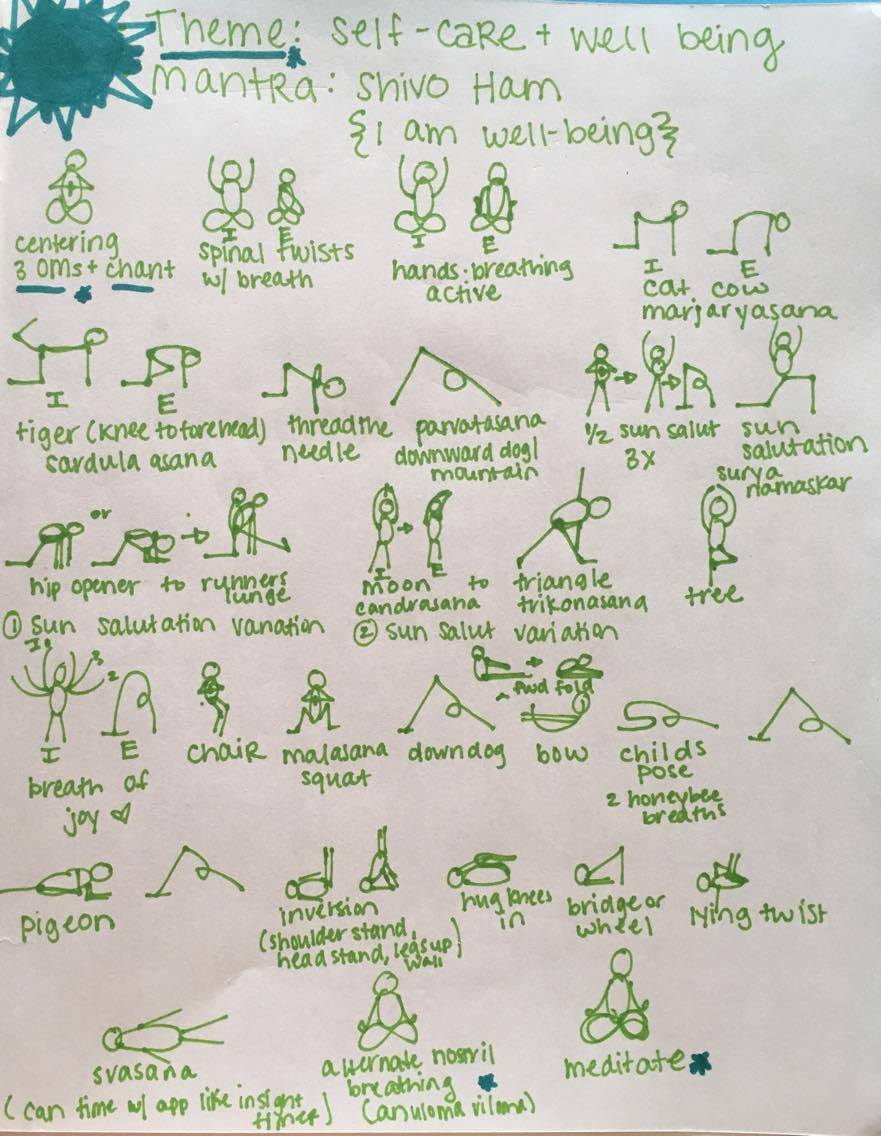 Theme: Self-care + well being
mantra: Shivo Ham
{I am well-being}
centering
3 oms + chant
I E
spinal twists
w/ breath
I E
hands: breathing
active
I E
cat cow
marjaryasana
I E
tiger (knee to forehead)
sardula asana
thread the
needle
parvatasana
downward dog/
mountain
1/2 sun salut
3x
sun
salutation
surya
namaskar
or
hip opener to runners
lunge
① sun salutation variation
I E
moon to
candrasana
triangle
trikonasana
② sun salut variation
tree
1 2 3
I E
breath of
joy
chair
malasana
squat
down dog
fwd fold
bow
childs
pose
2 honeybee
breaths
pigeon
inversion
(shoulder stand,
head stand, legs up
wall)
hug knees
in
bridge or
wheel
lying twist
svasana
(can time w/ app like insight
timer)
alternate nostril
breathing
(anuloma viloma)
meditate